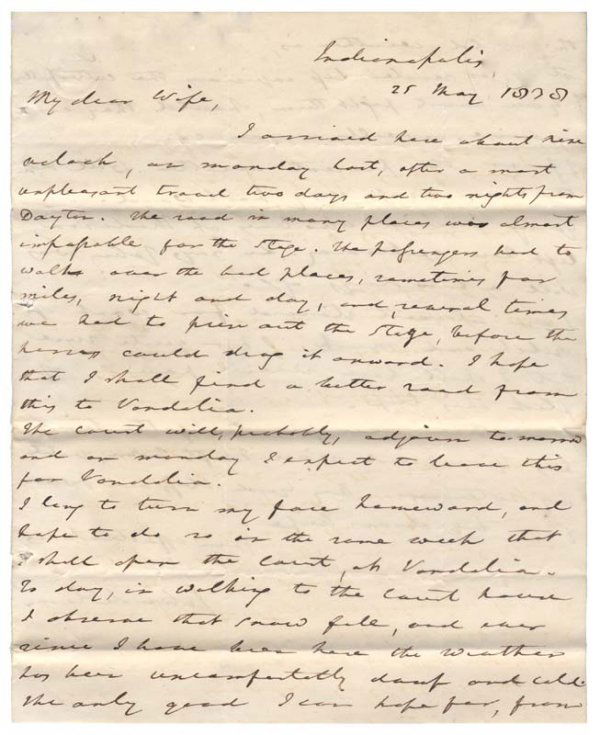 Indianapolis
25 May 1838
My dear Wife,
I arrived here about nine
oclock, on monday last, after a most
unpleasant travel two days and two nights from
Dayton. The road in many places was almost
impassable for the stage. The passengers had to
walk over the bad places, sometimes for
miles, night and day, and, several times
we had to prize out the stage, before the
horses could drag it onward. I hope
that I shall find a better road from
this to Vandalia.
The court will, probably, adjourn to-morrow
and on monday I expect to leave this
for Vandalia.
I long to turn my face homeward, and
hope to do so in the same week that
I shall open the Court, at Vandalia.
To day, in walking to the Court house
I observe that snow fell, and ever
since I have been here the weather
has been uncomfortably damp and cold.
The only good I can hope for, from